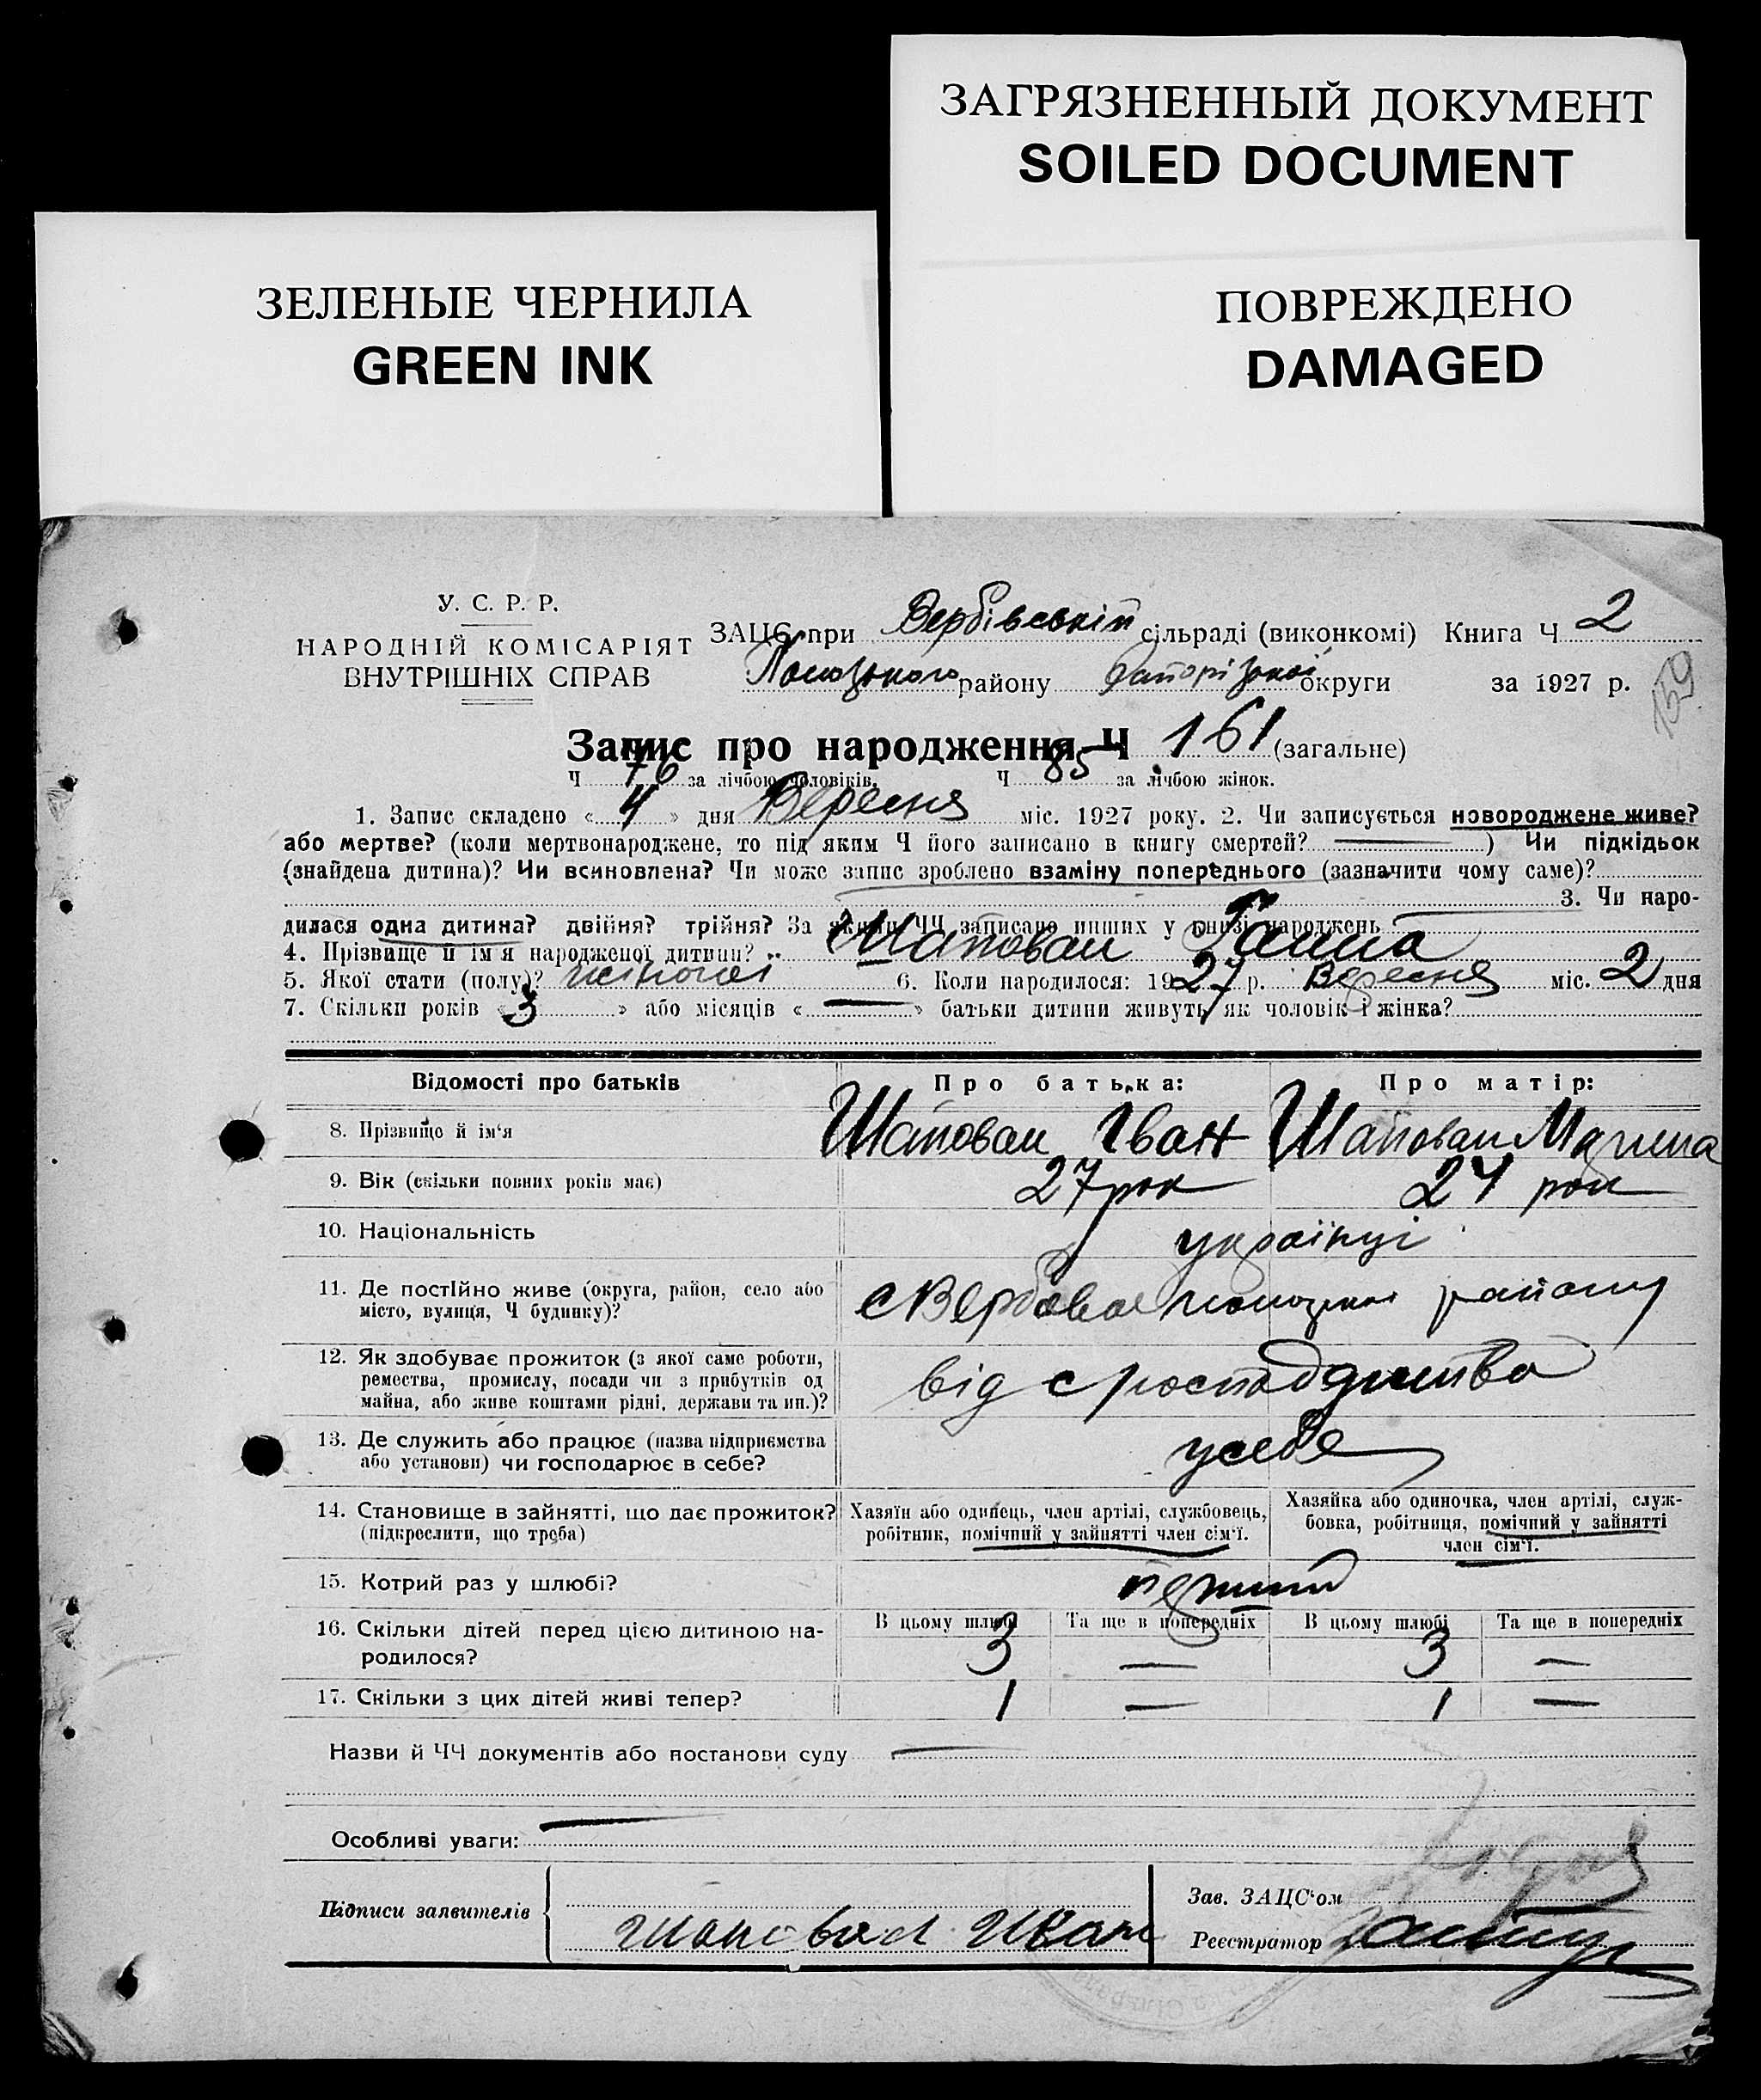 ЗАГРЯЗНЕННЫЙ ДОКУМЕНТ
SOILED DOCUMENT
ЗЕЛЕНЫЕ ЧЕРНИЛА
GREEN INK
ПОВРЕЖДЕНО
DAMAGED
У. С. Р. Р.
НАРОДНІЙ КОМІСАРІЯТ
ВНУТРІШНІХ СПРАВ
ЗАЦС при Вербівській сільраді (виконкомі) Книга Ч 2
району Запорізької округи за 1927 р.
159
Запис про народження Ч 161 (загальне)
Ч 76 за лічбою чоловіків, Ч 85 за лічбою жінок.
1. Запис складено « 4 » дня Вересня міс. 1927 року. 2. Чи записується новороджене живе?
або мертве? (коли мертвонароджене, то під яким Ч його записано в книгу смертей? ) Чи підкідьок
(знайдена дитина)? Чи всиновлена? Чи може запис зроблено взаміну попереднього (зазначити чому саме)?
3. Чи наро-
дилася одна дитина? двійня? трійня? За якими ЧЧ записано инших у книзі народжень
4. Прізвище й ім'я народженої дитини? Шаповал Ганна
5. Якої стати (полу)? жіночої 6. Коли народилося: 1927 р. Вересня міс. 2 дня
7. Скільки років « 3 » або місяців « — » батьки дитини живуть як чоловік і жінка?
Відомості про батьків Про батька: Про матір:
8. Прізвище й ім'я Шаповал Іван Шаповал Марина
9. Вік (скільки повних років має) 27 рок 24 рок
10. Національність українці
11. Де постійно живе (округа, район, село або
місто, вулиця, Ч будинку)? с Вербове району
12. Як здобуває прожиток (з якої саме роботи,
ремества, промислу, посади чи з прибутків од
майна, або живе коштами рідні, держави та ин.)? від с господарства
13. Де служить або працює (назва підприємства
або установи) чи господарює в себе? у себе
14. Становище в зайнятті, що дає прожиток?
(підкреслити, що треба)
Хазяїн або одинець, член артілі, службовець,
робітник, помічний у зайнятті член сім'ї.
Хазяйка або одиночка, член артілі, служ-
бовка, робітниця, помічний у зайнятті
член сім'ї.
15. Котрий раз у шлюбі? перший
В цьому шлюбі Та ще в попередніх В цьому шлюбі Та ще в попередніх
16. Скільки дітей перед цією дитиною на-
родилося? 3 — 3 —
17. Скільки з цих дітей живі тепер? 1 — 1 —
Назви й ЧЧ документів або постанови суду —
Особливі уваги: —
Підписи заявителів
Шаповал Иван
Зав. ЗАЦС'ом
Реєстратор